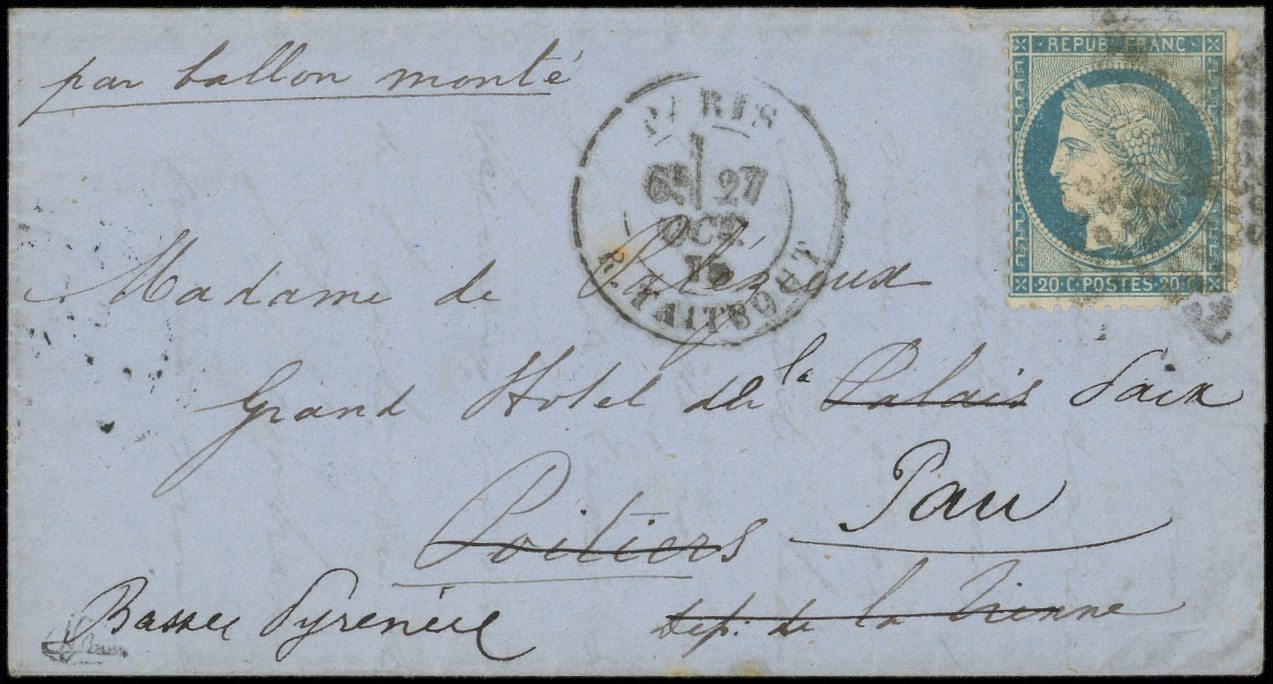 par ballon monté
REPUB. FRANC.
20 C. POSTES. 20 C.
PARIS
6E 27
OCT.
70
R. TAITBOUT
Madame de
Grand Hotel de la Palais Paix
Poitiers Pau
Basses Pyrénées dép. de la Vienne